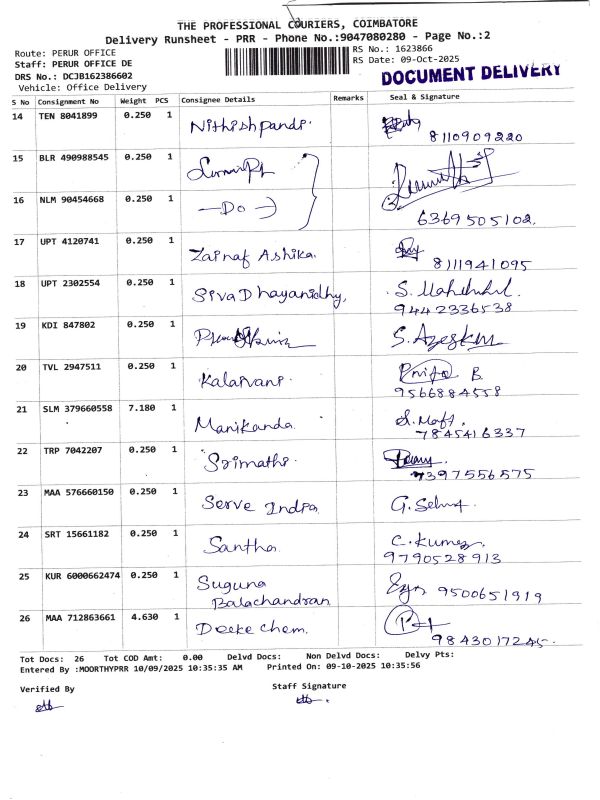 THE PROFESSIONAL COURIERS, COIMBATORE
Delivery Runsheet - PRR - Phone No.:9047080280 - Page No.:2
Route: PERUR OFFICE RS No.: 1623866
Staff: PERUR OFFICE DE RS Date: 09-Oct-2025
DRS No.: DCJB162386602 DOCUMENT DELIVERY
Vehicle: Office Delivery
S No Consignment No Weight PCS Consignee Details Remarks Seal & Signature
14 TEN 8041899 0.250 1 Nithishpandi.
8110909220
15 BLR 490988545 0.250 1
16 NLM 90454668 0.250 1 —Do—
6369505102.
17 UPT 4120741 0.250 1 Zainaf Ashika.
8111941095
18 UPT 2302554 0.250 1 Siva Dhayanidhy, S.
9442336538
19 KDI 847802 0.250 1 S.
20 TVL 2947511 0.250 1 Kalaivani. B.
9566884558
21 SLM 379660558 7.180 1 Manikanda.
7845416337
22 TRP 7042207 0.250 1 Srimathi.
7397556575
23 MAA 576660150 0.250 1 Serve India G.
24 SRT 15661182 0.250 1 Santha. C. Kumar
9790528913
25 KUR 6000662474 0.250 1 Suguna 9500651919
Balachandran
26 MAA 712863661 4.630 1 Deeke chem.
9843017245.
Tot Docs: 26 Tot COD Amt: 0.00 Delvd Docs: Non Delvd Docs: Delvy Pts:
Entered By :MOORTHYPRR 10/09/2025 10:35:35 AM Printed On: 09-10-2025 10:35:56
Verified By Staff Signature